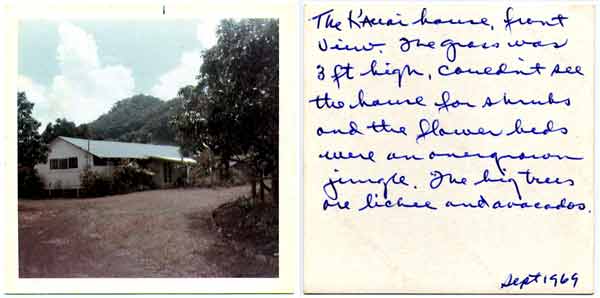 The K'Auai house, front
view. The grass was
3 ft high, couldn't see
the house for shrubs
and the flower beds
were an overgrown
jungle. The big trees
are lichee and avacados.
Sept 1969